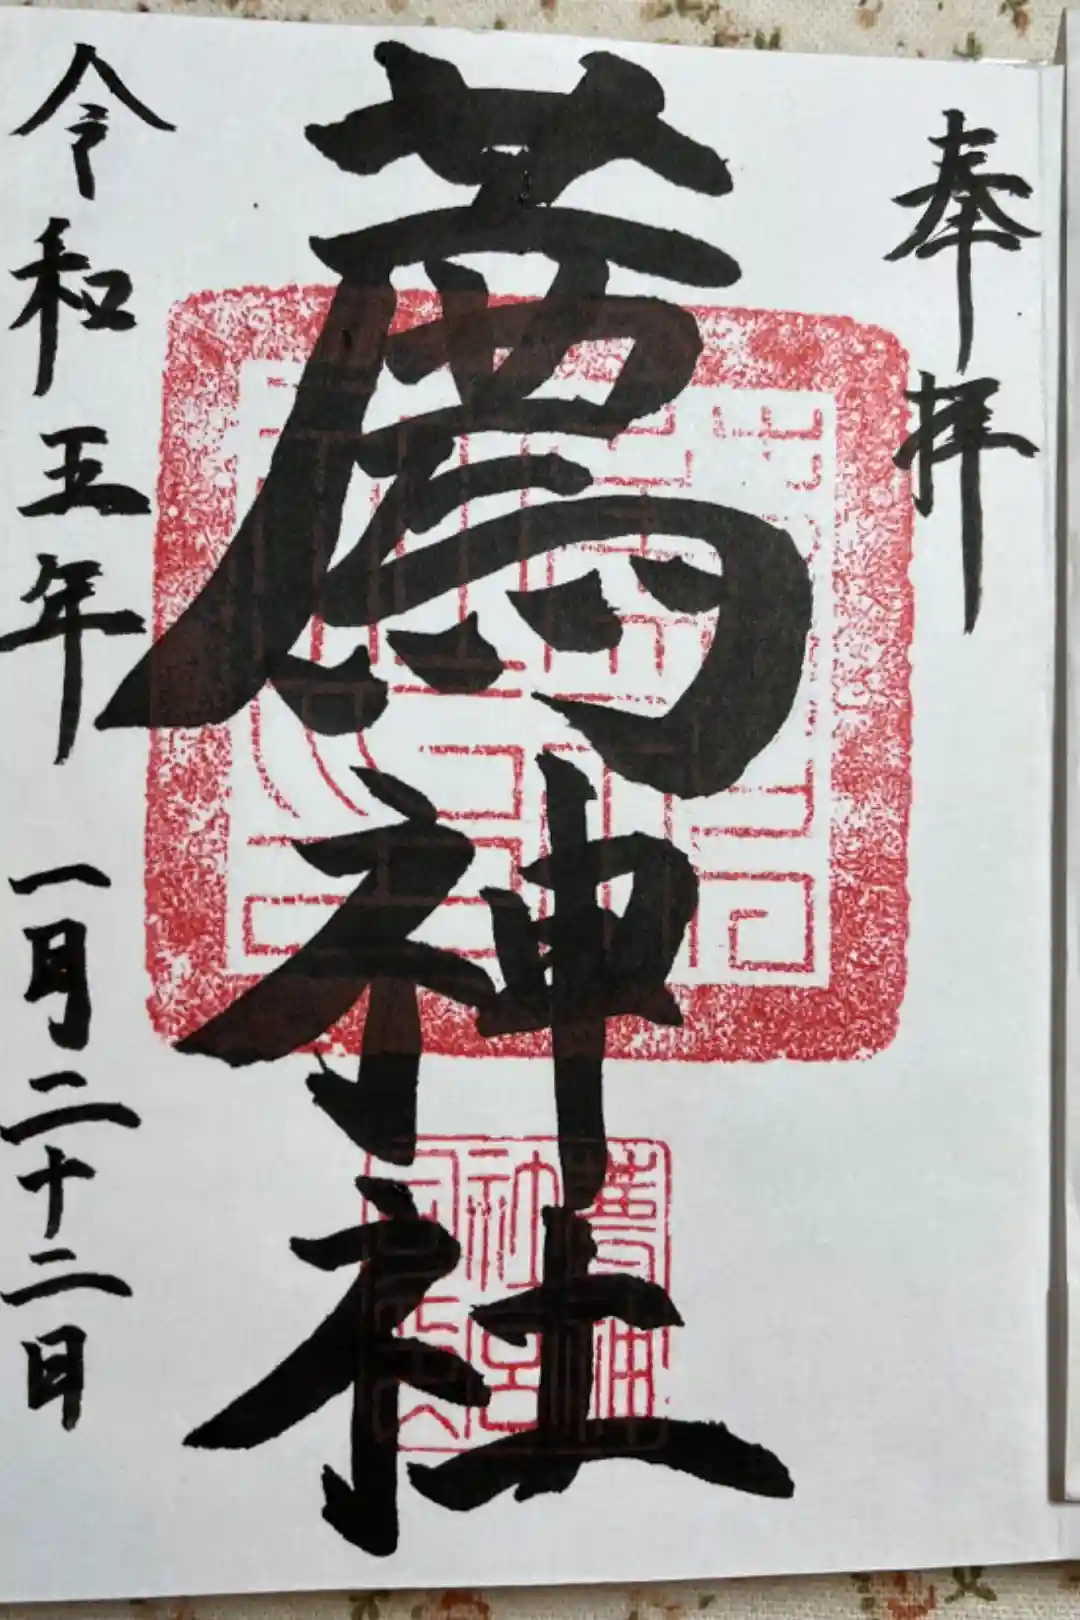 奉拝
薦神社
令和五年 一月二十二日